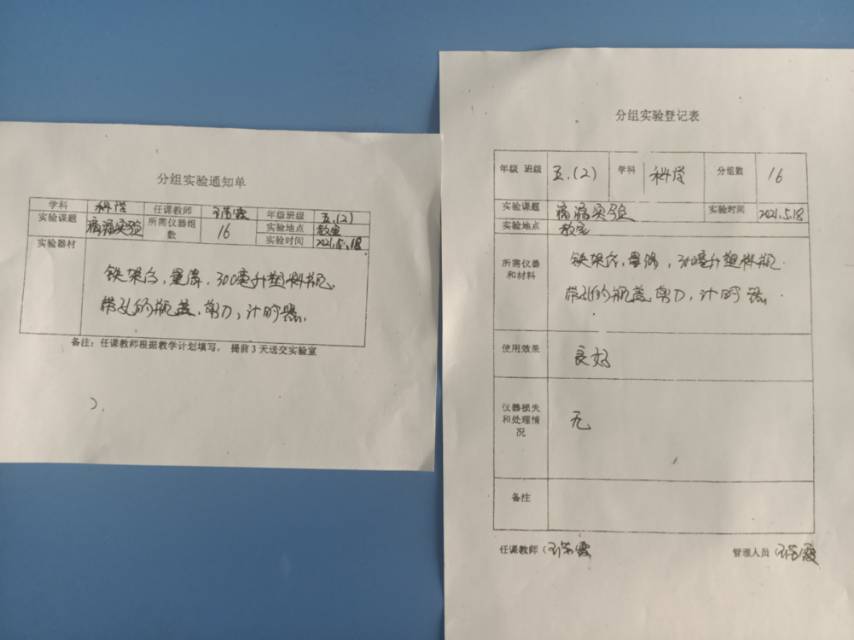 分组实验通知单
学科 科学 任课教师 年级班级 五.(2)
实验课题 滴漏实验 所需仪器组数 16 实验地点 教室
实验时间 2021.5.18
实验器材
铁架台,量筒,300毫升塑料瓶,
带孔的瓶盖,剪刀,计时器.
备注:任课教师根据教学计划填写,提前3天送交实验室
分组实验登记表
年级 班级 五.(2) 学科 科学 分组数 16
实验课题 滴漏实验 实验时间 2021.5.18
实验地点 教室
所需仪器和材料
铁架台,量筒,300毫升塑料瓶
带孔的瓶盖,剪刀,计时器.
使用效果 良好
仪器损失和处理情况 无
备注
任课教师( 管理人员(